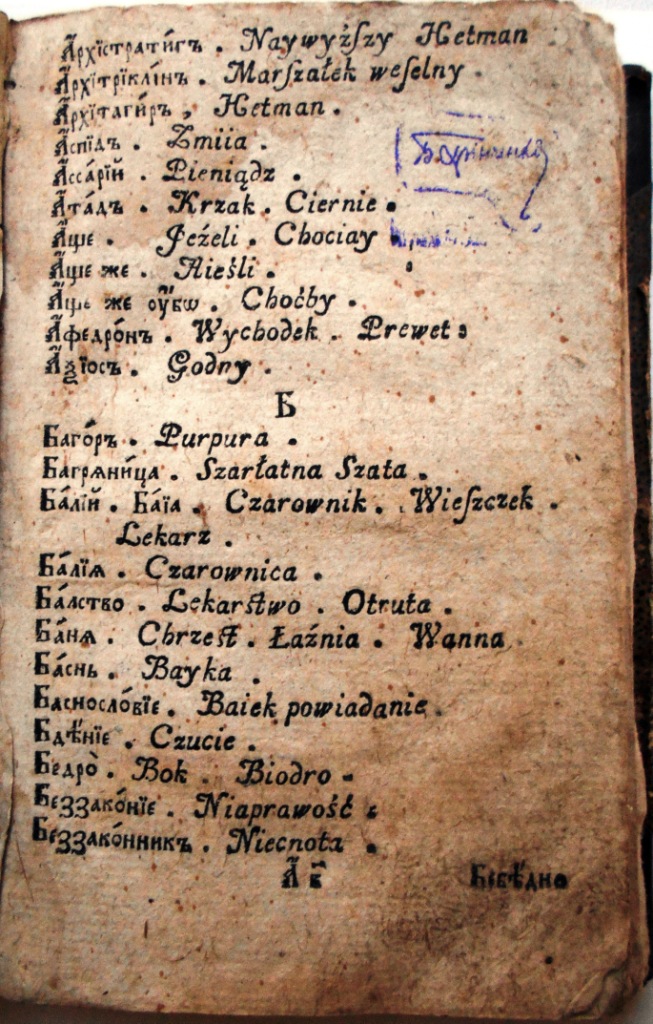 А҆рхїстрати́гъ . Naywyżſzy Hetman
А҆рхїтрїклі́нъ . Marſzałek weſelny .
А҆рхїтаги́ръ , Hetman .
А҆спідъ . Zmiia .
А҆сса́рїй . Pieniądz .
А҆та́дъ . Krzak . Ciernie .
А҆ще . Jeżeli . Chociay
А҆ще же . Aieśli .
А҆ще же ᲂу҆́бѡ . Choćby .
А҆федро́нъ . Wychodek . Prewet .
А҆ѯїосъ . Godny .
Б
Баго́ръ . Purpura .
Багрѧни́ца . Szarłatna Szata .
Ба́лїй . Ба́їа . Czarownik . Wieſzczek .
Lekarz .
Ба́лїѧ . Czarownica .
Ба́лство . Lekarſtwo . Otruta .
Ба́нѧ . Chrzeſt . Łaźnia . Wanna
Ба́снь . Bayka .
Басносло́вїе . Baiek powiadanie .
Бдѣ́нїе . Czucie .
Бедро̀ . Bok . Biodro .
Беззако́нїе . Niaprawość .
Беззако́нникъ . Niecnota .
А҆ в҃ Бебѣ́дно